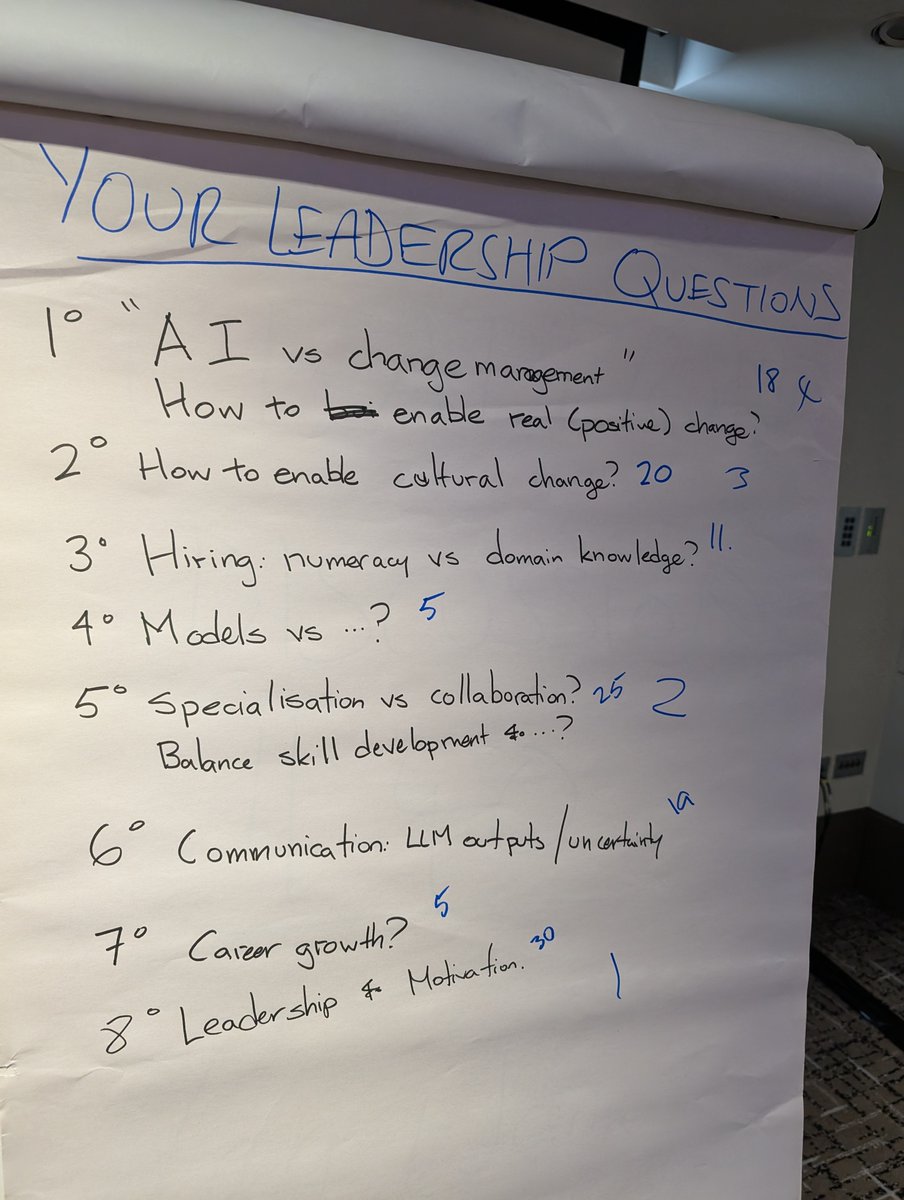 YOUR LEADERSHIP QUESTIONS
1° "AI vs change management"
How to enable real (positive) change? 18 4
2° How to enable cultural change? 20 3
3° Hiring: numeracy vs domain knowledge? 11.
4° Models vs ...? 5
5° Specialisation vs collaboration? 25 2
Balance skill development & ...?
6° Communication: LLM outputs / uncertainty
7° Career growth? 5
8° Leadership & Motivation. 30 1